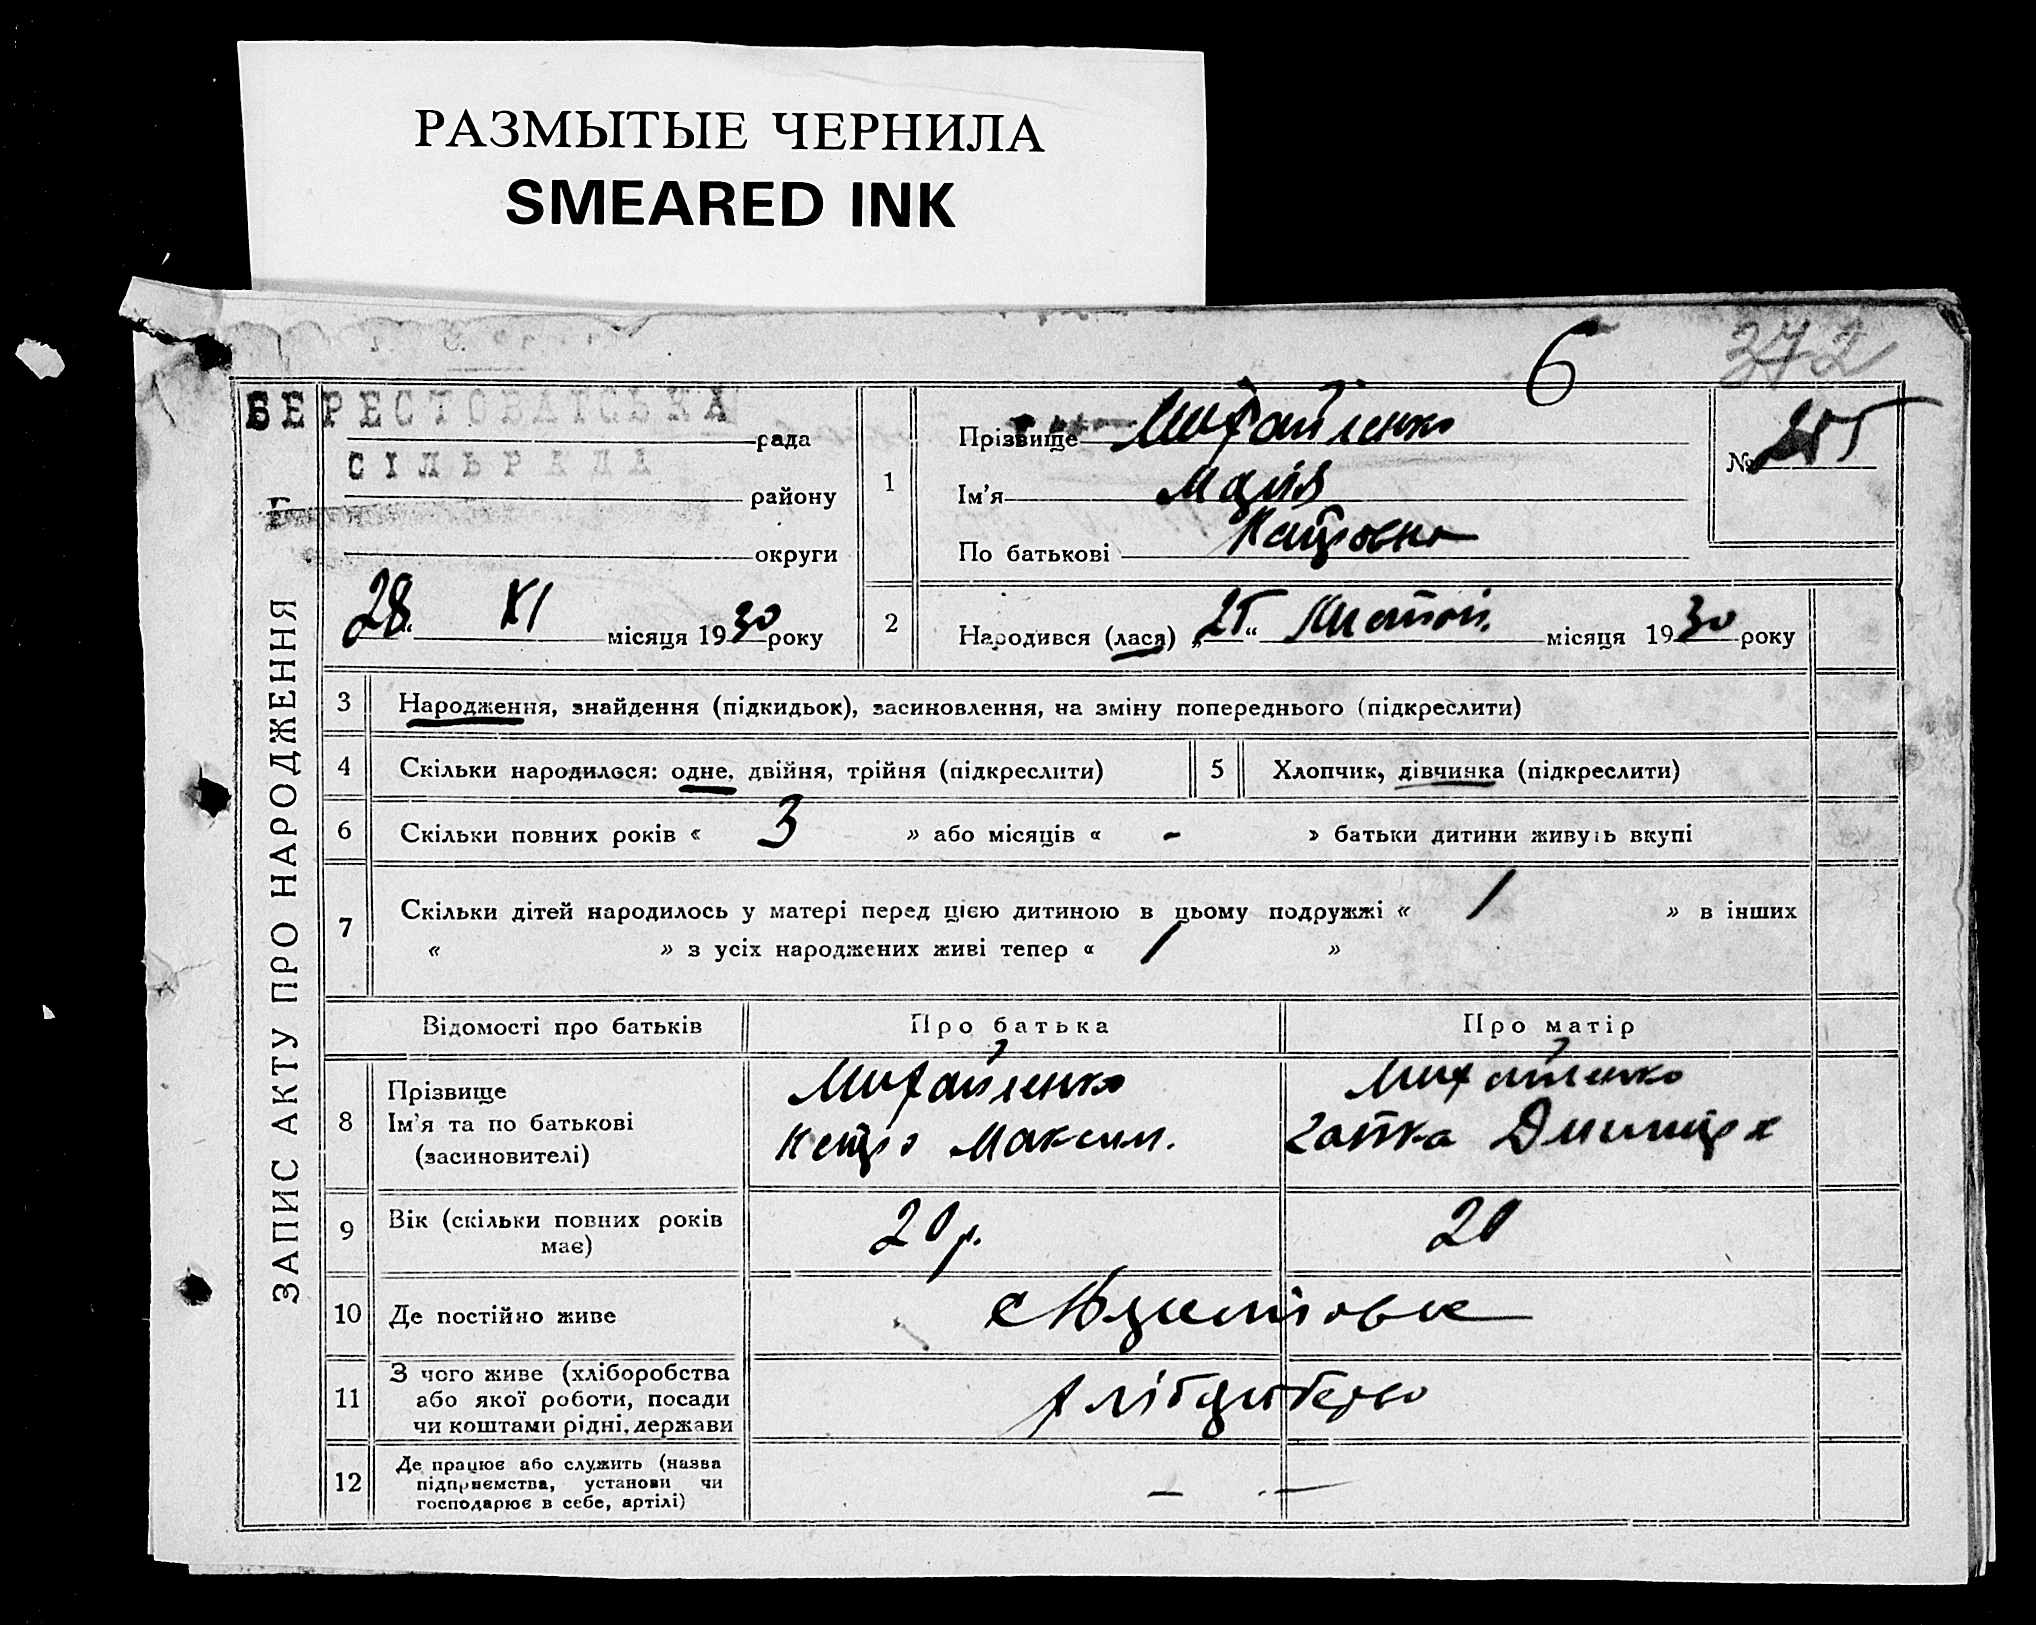 РАЗМЫТЫЕ ЧЕРНИЛА
SMEARED INK
6
372
БЕРЕСТОВАТСЬКА
рада
СІЛЬРАДА
району
округи
28 " XI місяця 1930 року
ЗАПИС АКТУ ПРО НАРОДЖЕННЯ
1
Прізвище Михайленко
Ім'я Марія
По батькові Петровна
№
2
Народився (лася) „25“ місяця 1930 року
3
Народження, знайдення (підкидьок), засиновлення, на зміну попереднього (підкреслити)
4
Скільки народилося: одне, двійня, трійня (підкреслити)
5
Хлопчик, дівчинка (підкреслити)
6
Скільки повних років « 3 » або місяців « - » батьки дитини живуть вкупі
7
Скільки дітей народилось у матері перед цією дитиною в цьому подружжі « 1 » в інших
« » з усіх народжених живі тепер « 1 »
Відомості про батьків
Про батька
Про матір
8
Прізвище
Ім'я та по батькові
(засиновителі)
Михайленко
Петро Максим.
Михайленко
Дмитр
9
Вік (скільки повних років
має)
20 р.
20
10
Де постійно живе
с
11
З чого живе (хліборобства
або якої роботи, посади
чи коштами рідні, держави
12
Де працює або служить (назва
підприємства, установи чи
господарює в себе, артілі)
— —